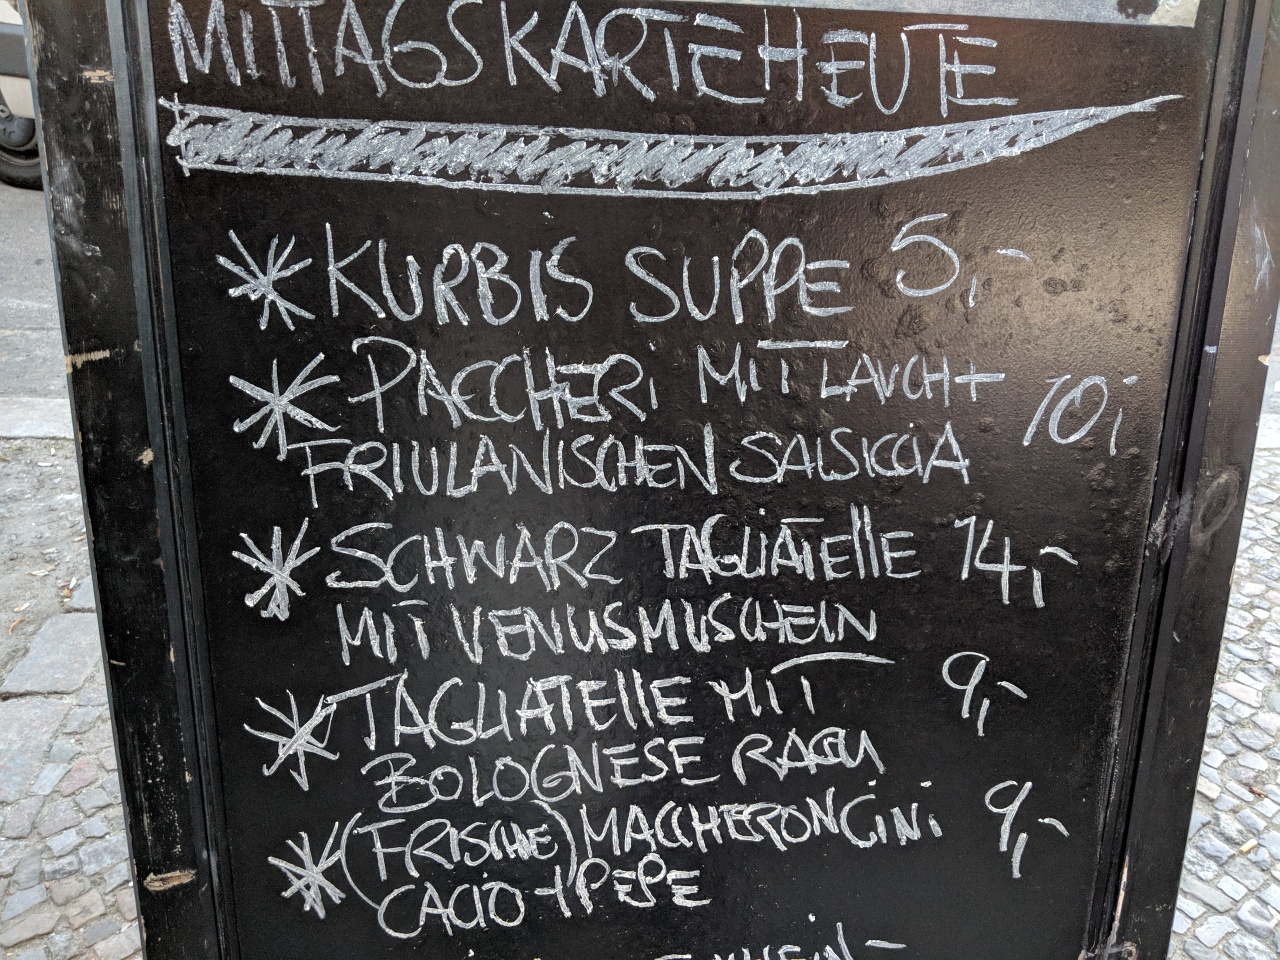 MITTAGSKARTE HEUTE
KURBIS SUPPE 5,-
PACCHERi MIT LAUCH + 10,-
FRIULANISCHEN SALSICCIA
SCHWARZ TAGLIATELLE 14,-
MIT VENUSMUSCHELN
TAGLIATELLE MIT 9,-
BOLOGNESE RAGU
(FRISCHE) MACCHERONCINI 9,-
CACIO + PEPE